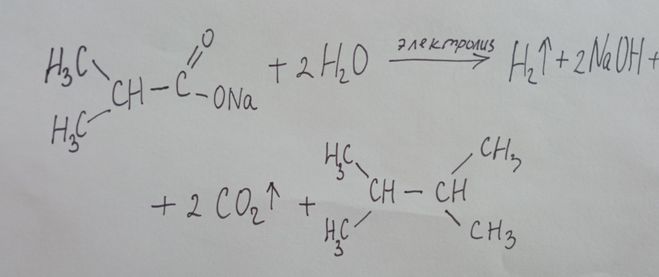 O
H₃C
CH – C + 2H₂O электролиз H₂↑ + 2NaOH +
H₃C ONa
H₃C CH₃
+ 2 CO₂↑ + CH – CH
H₃C CH₃